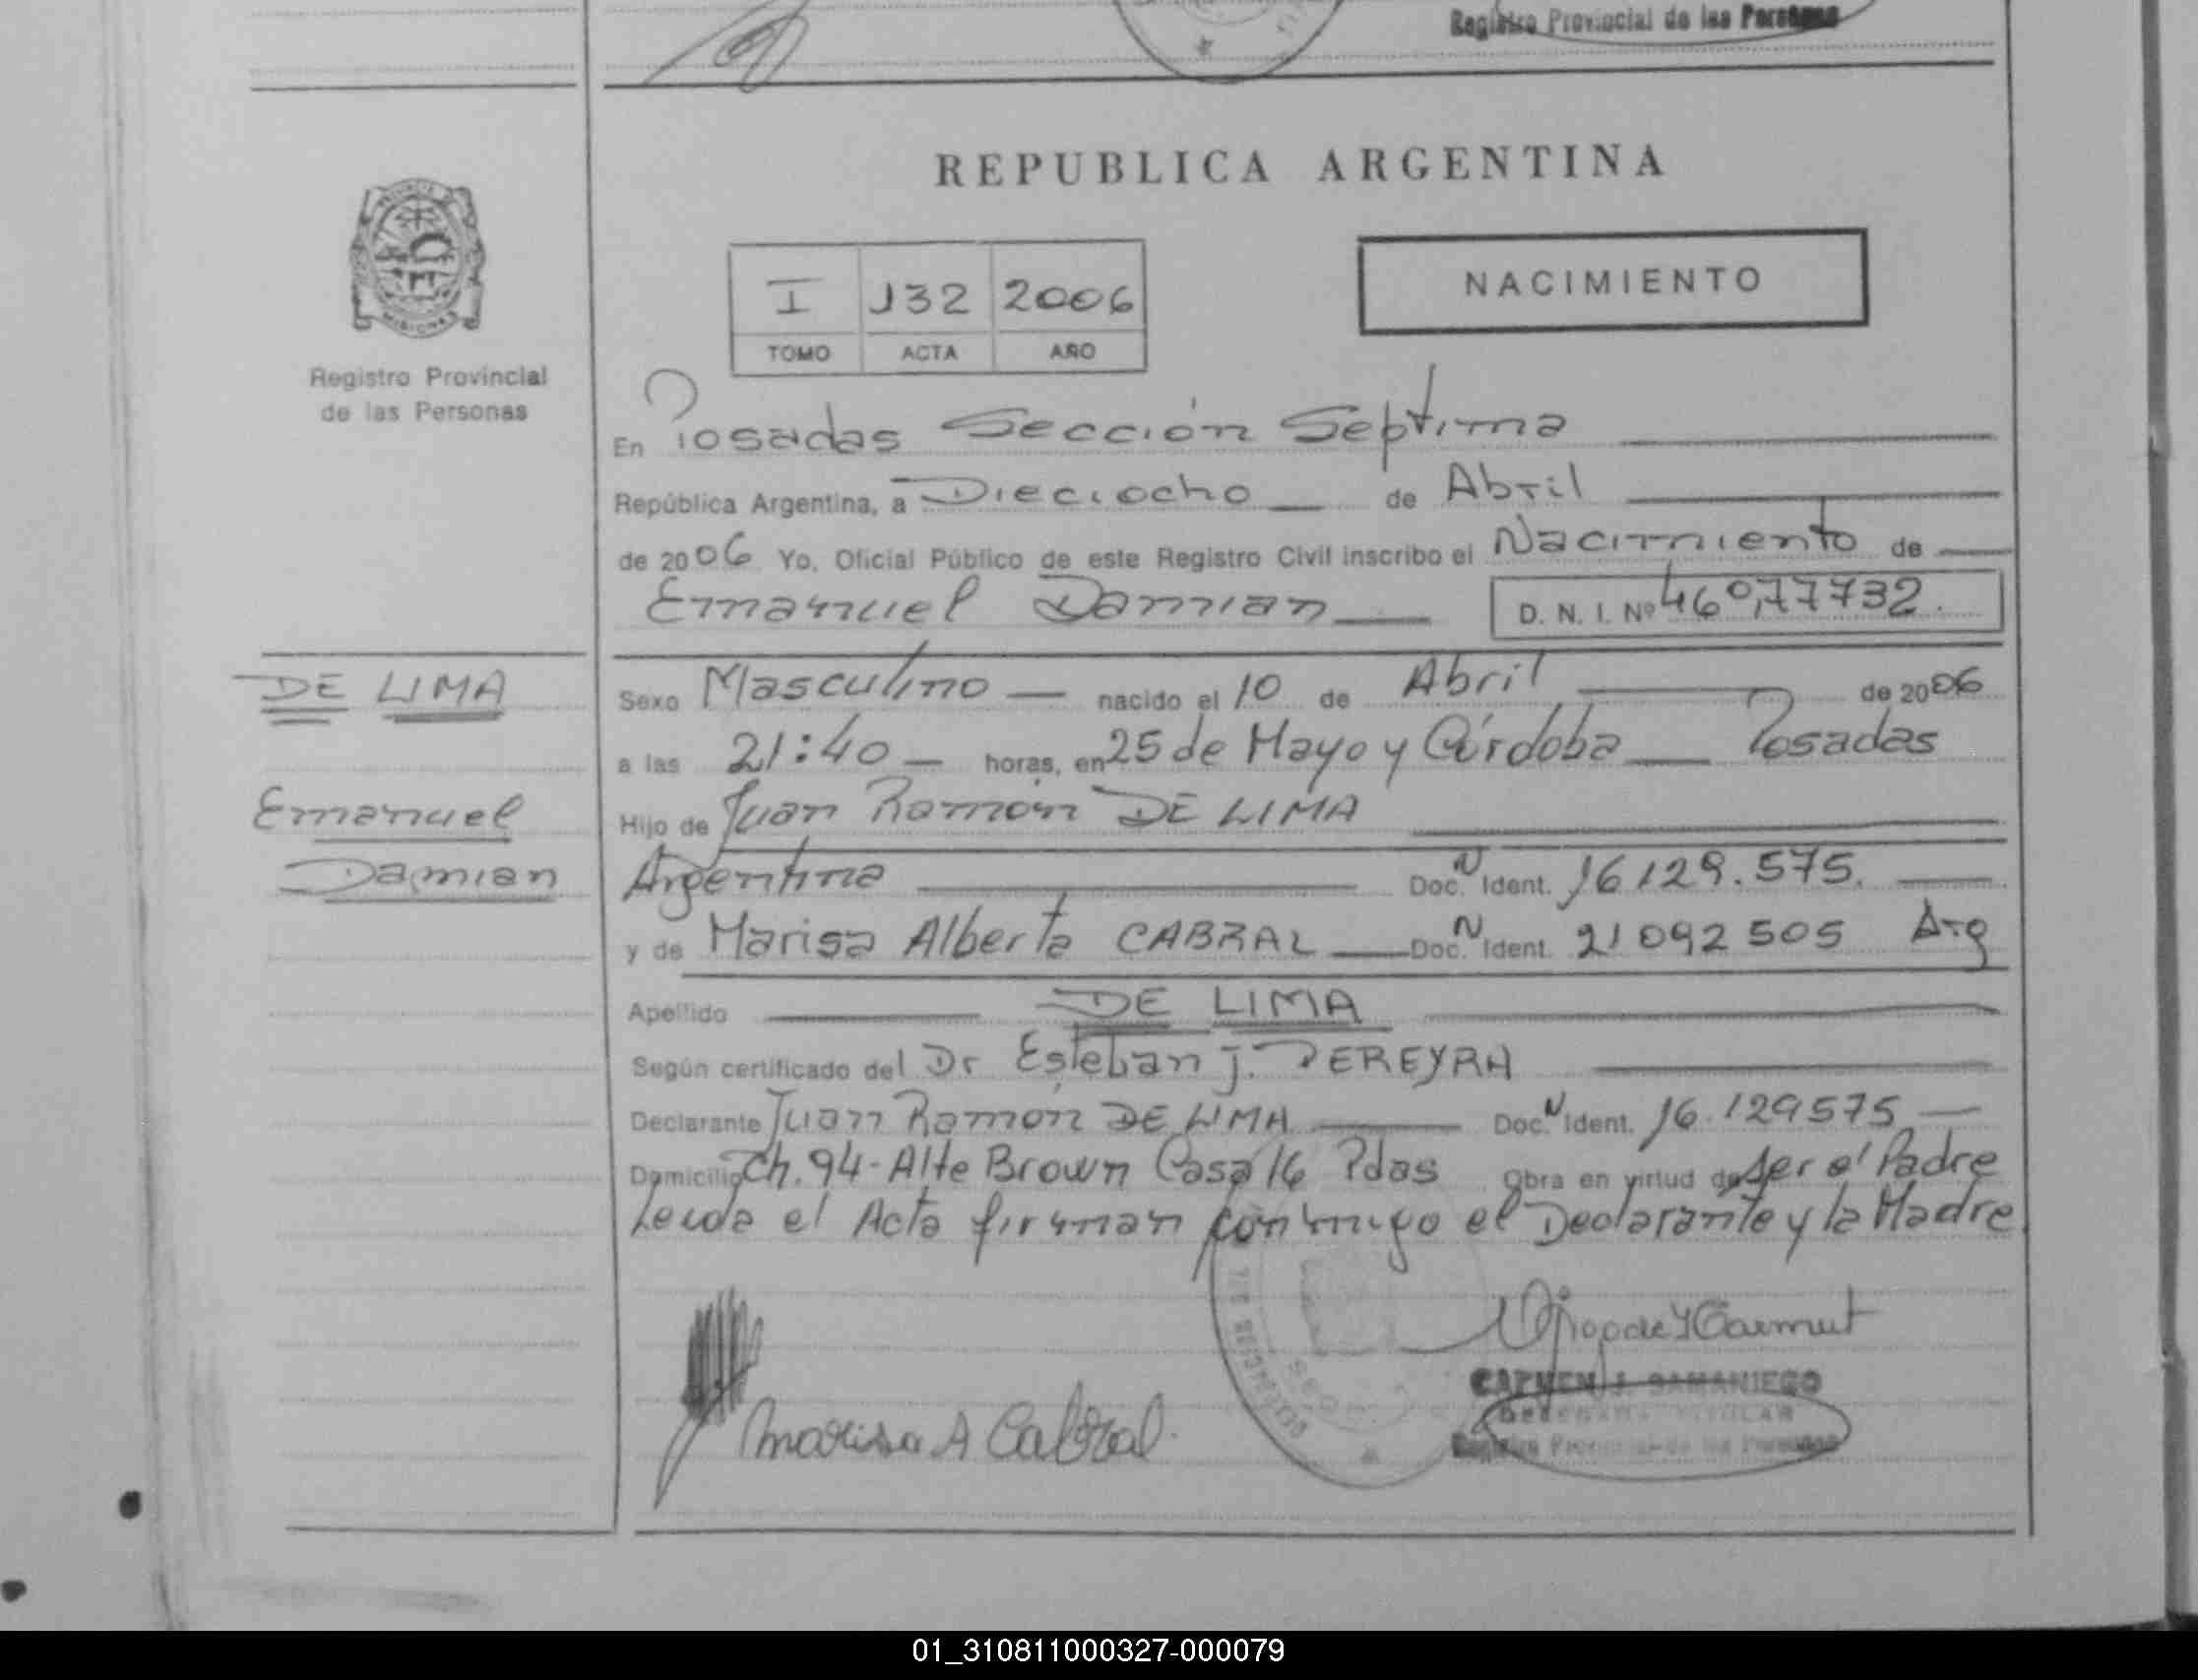 Registro Provincial de las Personas
REPUBLICA ARGENTINA
MISIONES
Registro Provincial
de las Personas
I 132 2006
TOMO ACTA AÑO
NACIMIENTO
En Posadas Sección Septima
República Argentina, a Dieciocho de Abril
de 2006 Yo, Oficial Público de este Registro Civil inscribo el Nacimiento de
Emanuel Damian D. N. I. Nº 46.077732.
DE LIMA
Emanuel
Damian
Sexo Masculino nacido el 10 de Abril de 2006
a las 21:40 horas, en 25 de Mayo y Córdoba Posadas
Hijo de Juan Ramón DE LIMA
Argentina Doc. N Ident. 16129.575.
y de Marisa Alberta CABRAL Doc. N Ident. 21092505 Arg
Apellido DE LIMA
Según certificado del Dr Esteban J. PEREYRA
Declarante Juan Ramón DE LIMA Doc. N Ident. 16.129575
Domicilio Ch. 94-Alte Brown Casa 16 Pdas Obra en virtud de Ser el Padre
Leida el Acta firman conmigo el Declarante y la Madre
Marisa A Cabral.
CARMEN J. SAMANIEGO
DELEGADA TITULAR
Registro Provincial de las Personas
01_310811000327-000079